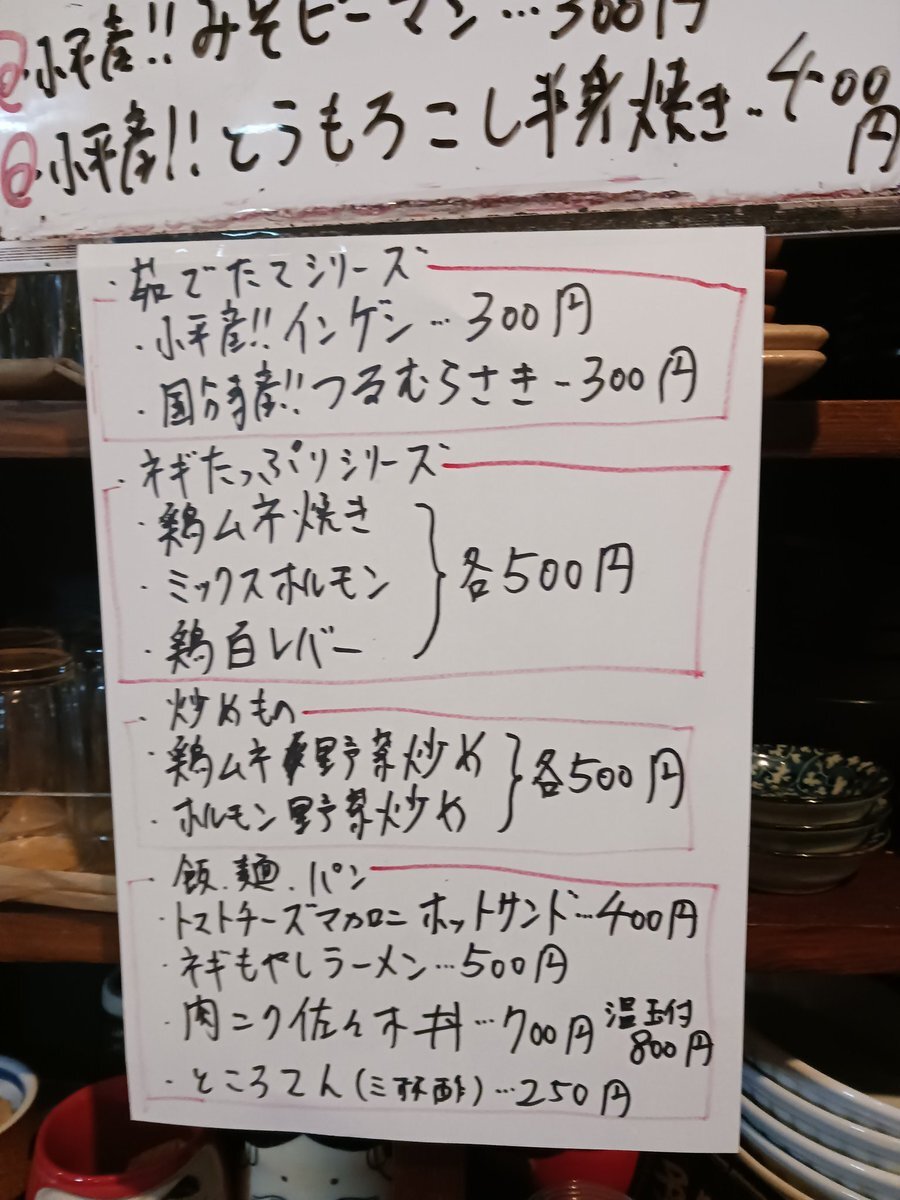 小平産!!みそピーマン…300円
小平産!!とうもろこし半身焼き‥400円
・茹でたてシリーズ
・小平産!!インゲン…300円
・国分寺産!!つるむらさき‥300円
・ネギたっぷりシリーズ
・鶏ムネ焼き
・ミックスホルモン
・鶏白レバー
各500円
・炒めもの
・鶏ムネ野菜炒め
・ホルモン野菜炒め
各500円
・飯、麺、パン
・トマトチーズマカロニホットサンド…400円
・ネギもやしラーメン…500円
・肉ニク佐々木丼…700円 温玉付800円
・ところてん(三杯酢)…250円